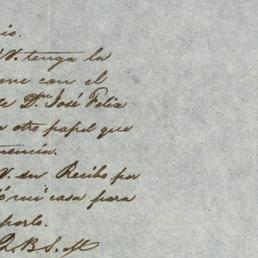 io.
V. tenga la
me con el
de Dn. José Feliz
otro papel que
nencia.
V. un Recibo por
ó mi casa para
porlo.
Q. B. S. M.